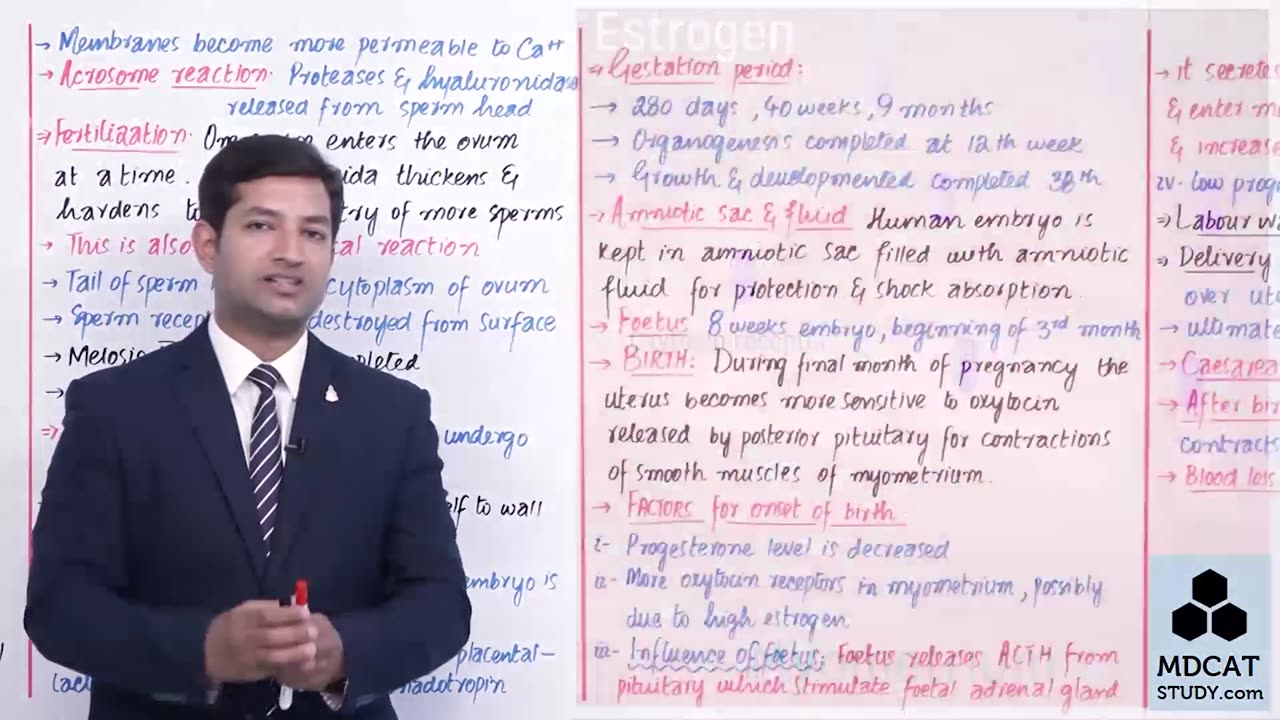 → Membranes become more permeable to Ca++
→ Acrosome reaction. Proteases & hyaluronidase
released from sperm head
⇒ Fertilization. One enters the ovum
at a time. ida thickens &
hardens to ry of more sperms
→ This is also tal reaction
→ Tail of sperm cytoplasm of ovum
→ Sperm recep destroyed from surface
→ Meiosis pleted
undergo
lf to wall
embryo is
placental-
lac nadotropin
Estrogen
⇒ Gestation period:
→ 280 days, 40 weeks, 9 months
→ Organogenesis completed at 12th week
→ Growth & developmented completed 38th
→ Amniotic sac & fluid Human embryo is
kept in amniotic sac filled with amniotic
fluid for protection & shock absorption.
→ Foetus 8 weeks embryo, beginning of 3rd month
→ BIRTH: During final month of pregnancy the
uterus becomes more sensitive to oxytocin
released by posterior pituitary for contractions
of smooth muscles of myometrium.
→ FACTORS for onset of birth.
i- Progesterone level is decreased
ii- More oxytocin receptors in myometrium, possibly
due to high estrogen
iii- Influence of foetus: Foetus releases ACTH from
pituitary which stimulate foetal adrenal gland
→ it secretes
& enter m
& increase
iv. low prog
⇒ Labour w
⇒ Delivery
over ute
→ ultimate
→ Caesarea
→ After bir
contracts
→ Blood loss
MDCAT
STUDY.com